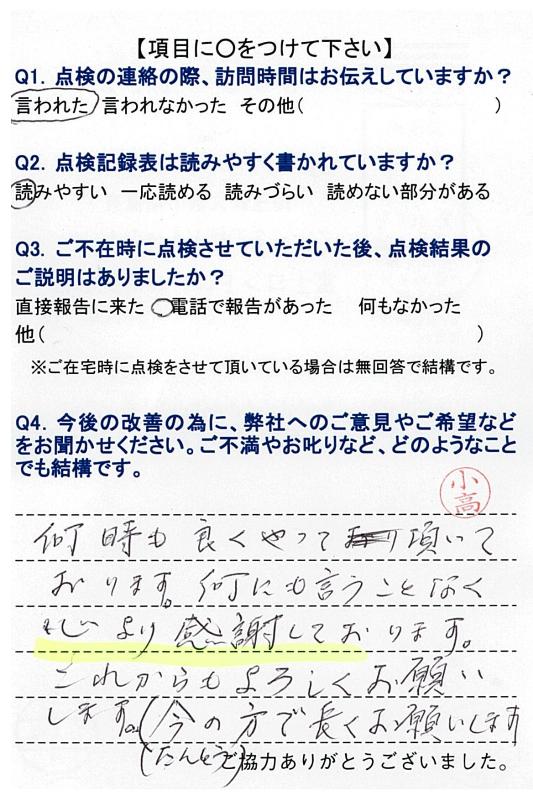 【項目に○をつけて下さい】
Q1. 点検の連絡の際、訪問時間はお伝えしていますか？
言われた 言われなかった その他( )
Q2. 点検記録表は読みやすく書かれていますか？
読みやすい 一応読める 読みづらい 読めない部分がある
Q3. ご不在時に点検させていただいた後、点検結果の
ご説明はありましたか？
直接報告に来た 電話で報告があった 何もなかった
他( )
※ご在宅時に点検をさせて頂いている場合は無回答で結構です。
Q4. 今後の改善の為に、弊社へのご意見やご希望など
をお聞かせください。ご不満やお叱りなど、どのようなこと
でも結構です。
小高
何時も良くやって頂いて
おります。何にも言うことなく
心より感謝しております。
これからもよろしくお願い
します。(今の方で長くお願いします
(たんとう)
ご協力ありがとうございました。